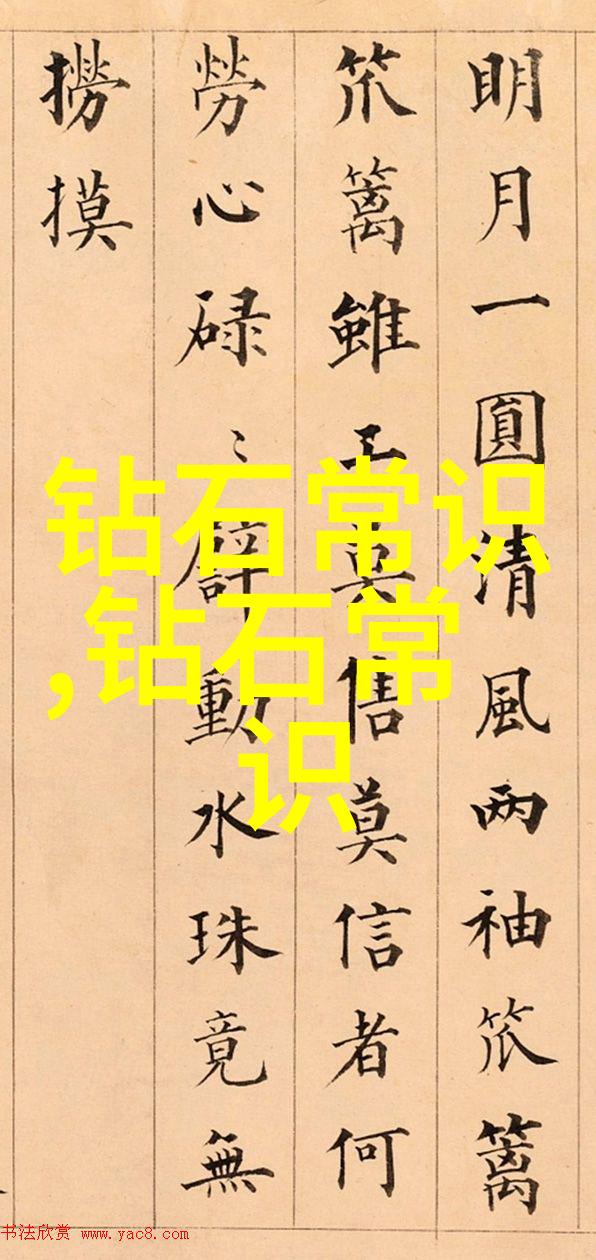 明月一圓清風两袖笊籬
笊籬雖工莫售莫信者何
勞心碌〻劈動水珠竟無
撈摸
钻石常识
,钻石常
识
书法欣赏 www.yac8.com